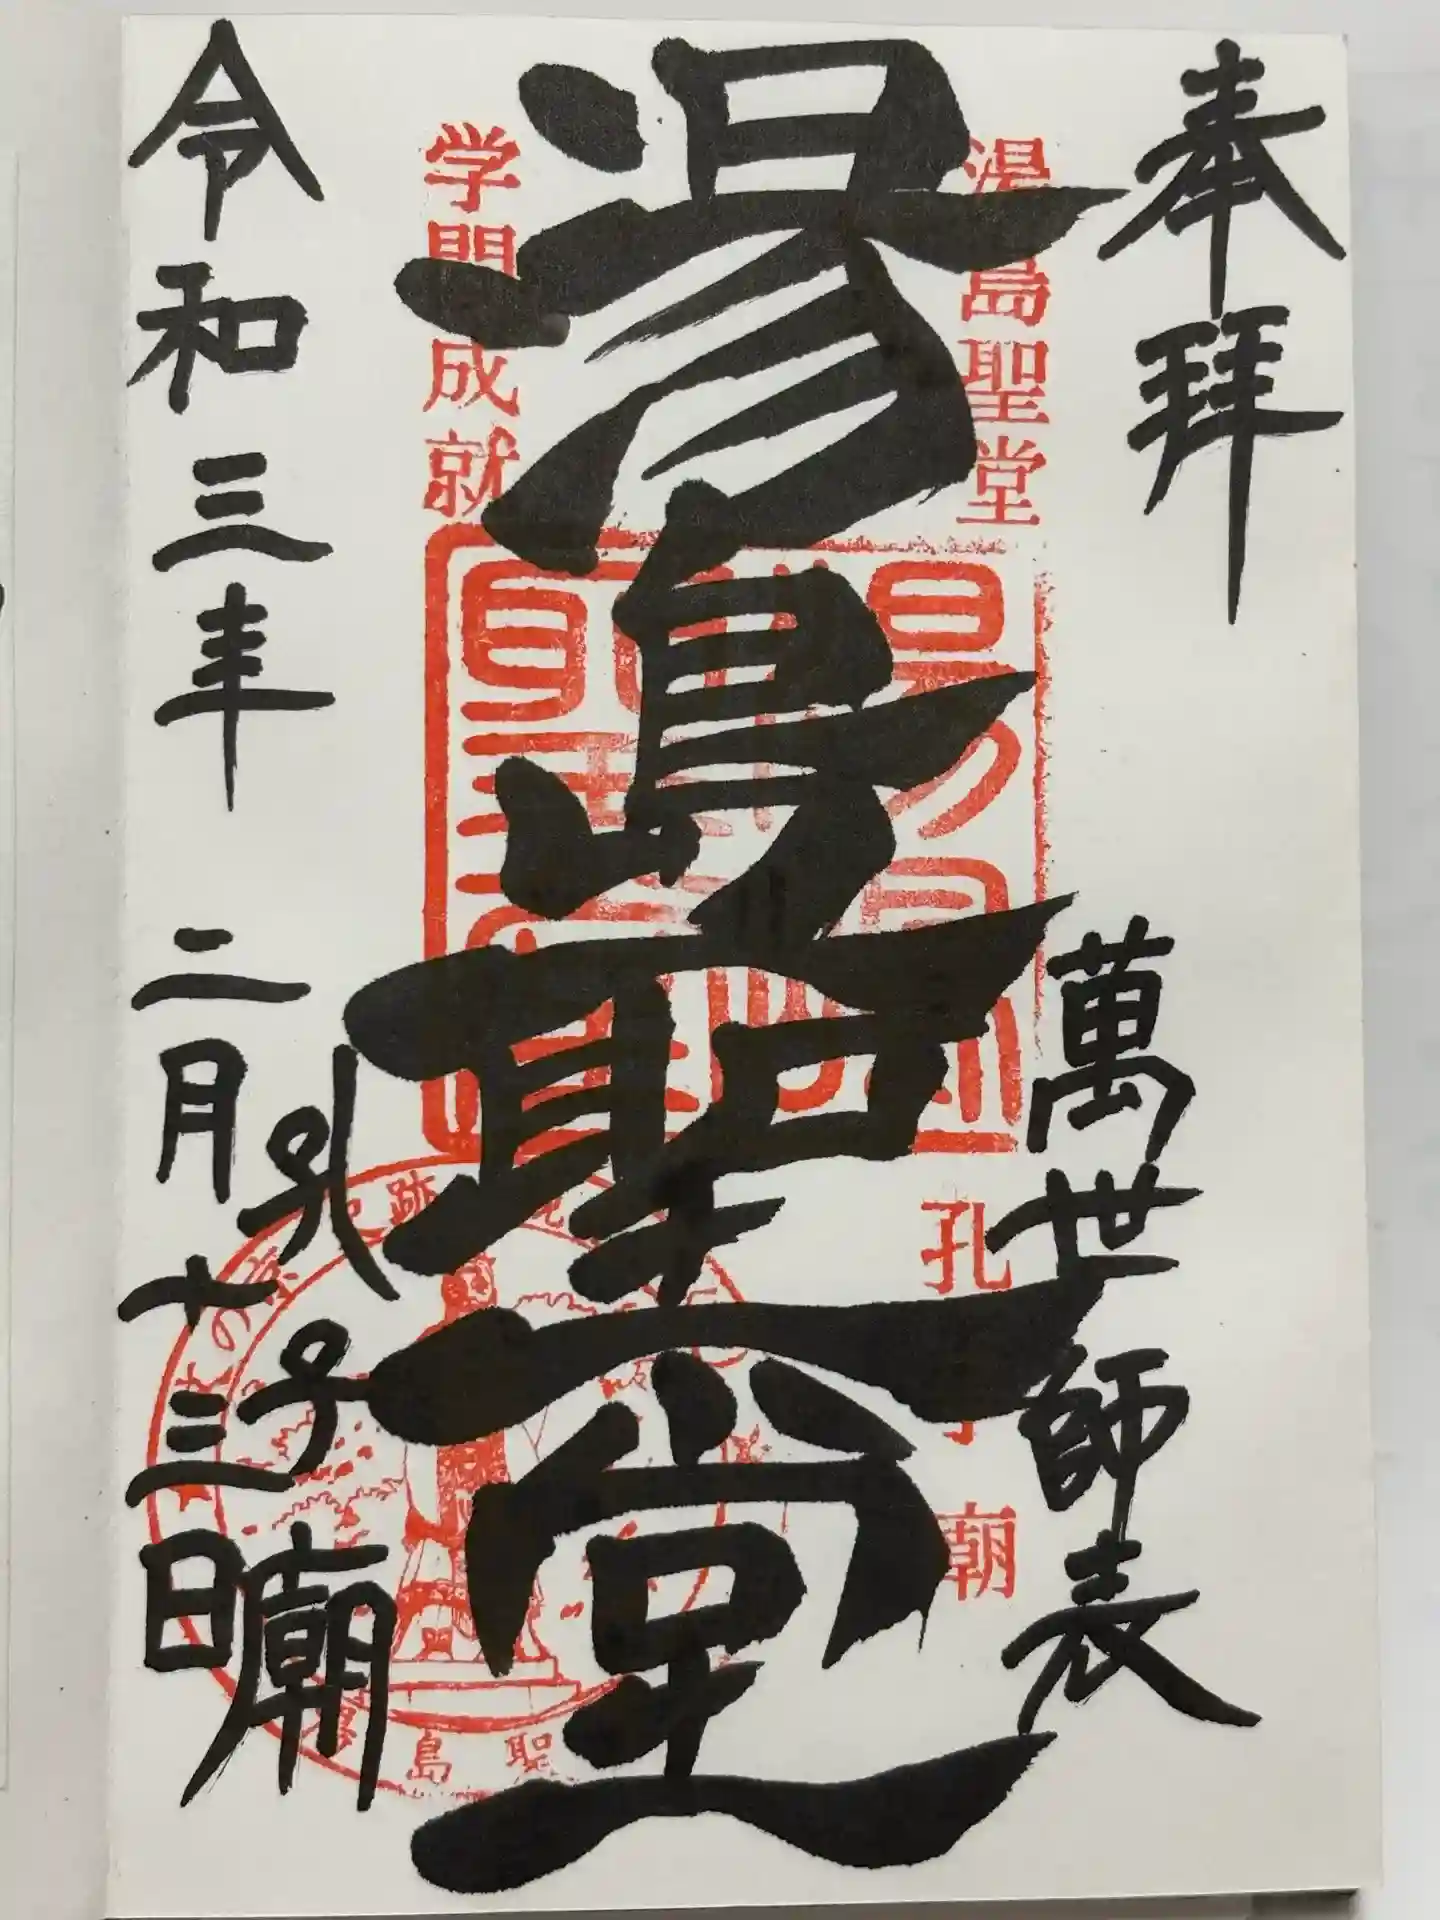 奉拝
萬世師表
湯島聖堂
孔子廟
令和三年二月十三日
湯島聖堂
学問成就
孔子廟